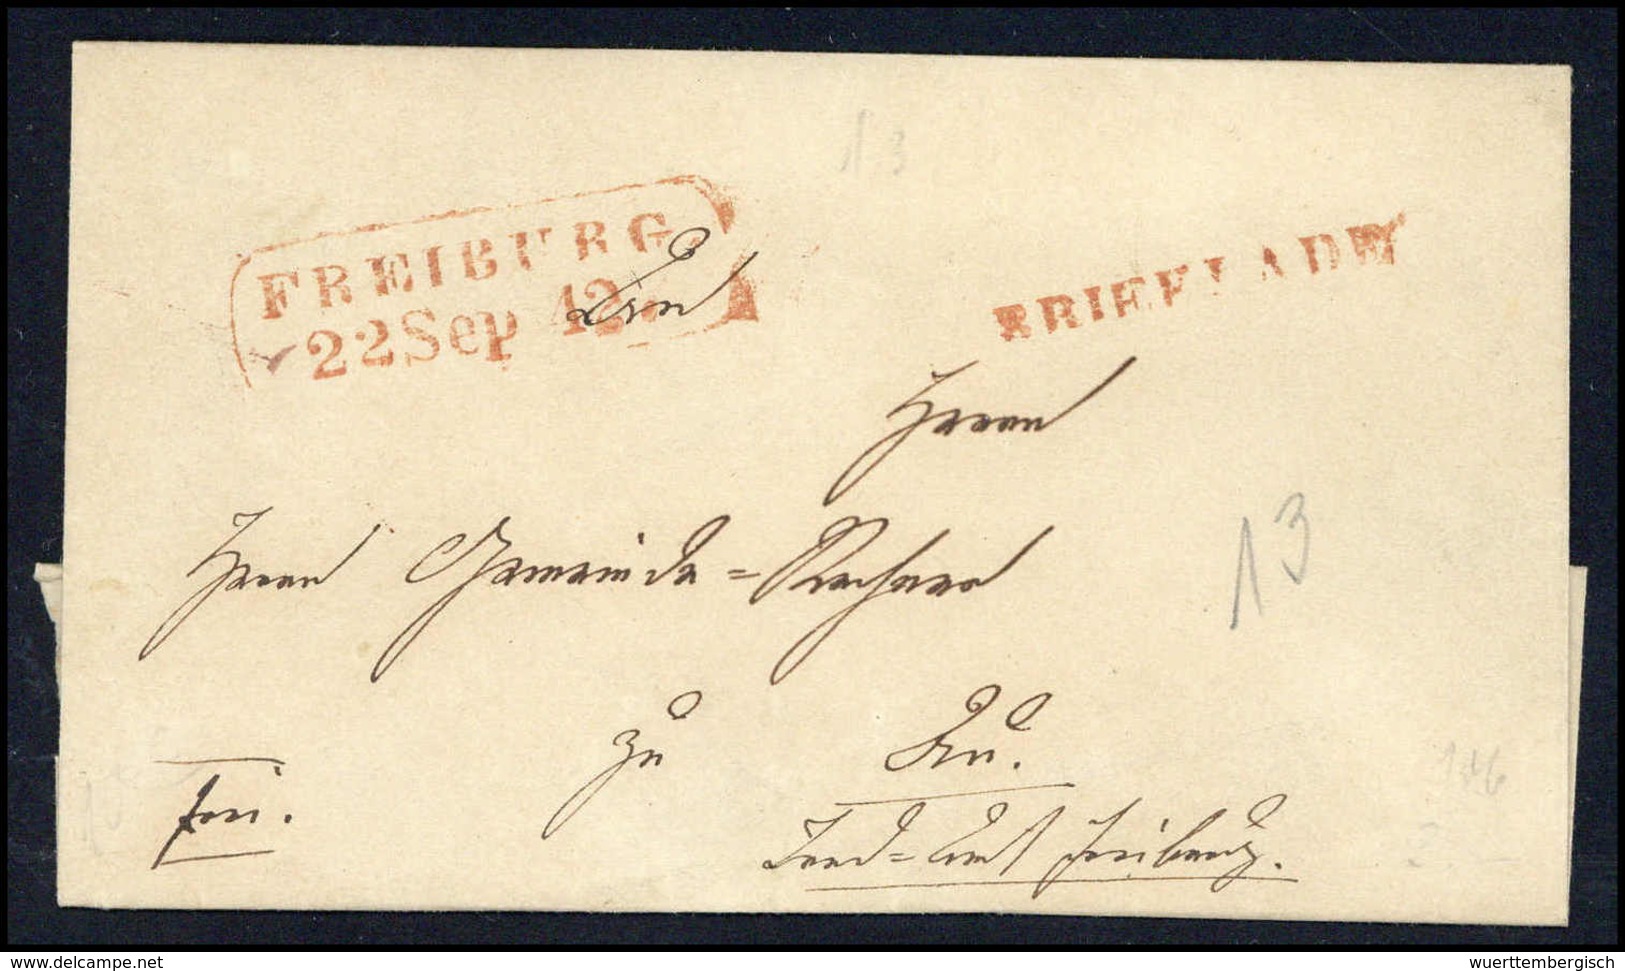 13
FREIBURG.
22 Sep 42
BRIEFLADE
Dem
Herrn
Herrn Gemeinde=Rechner
13
zu Au.
frei.
Land=Amt Freiburg.
146
www.delcampe.net
wuerttembergisch